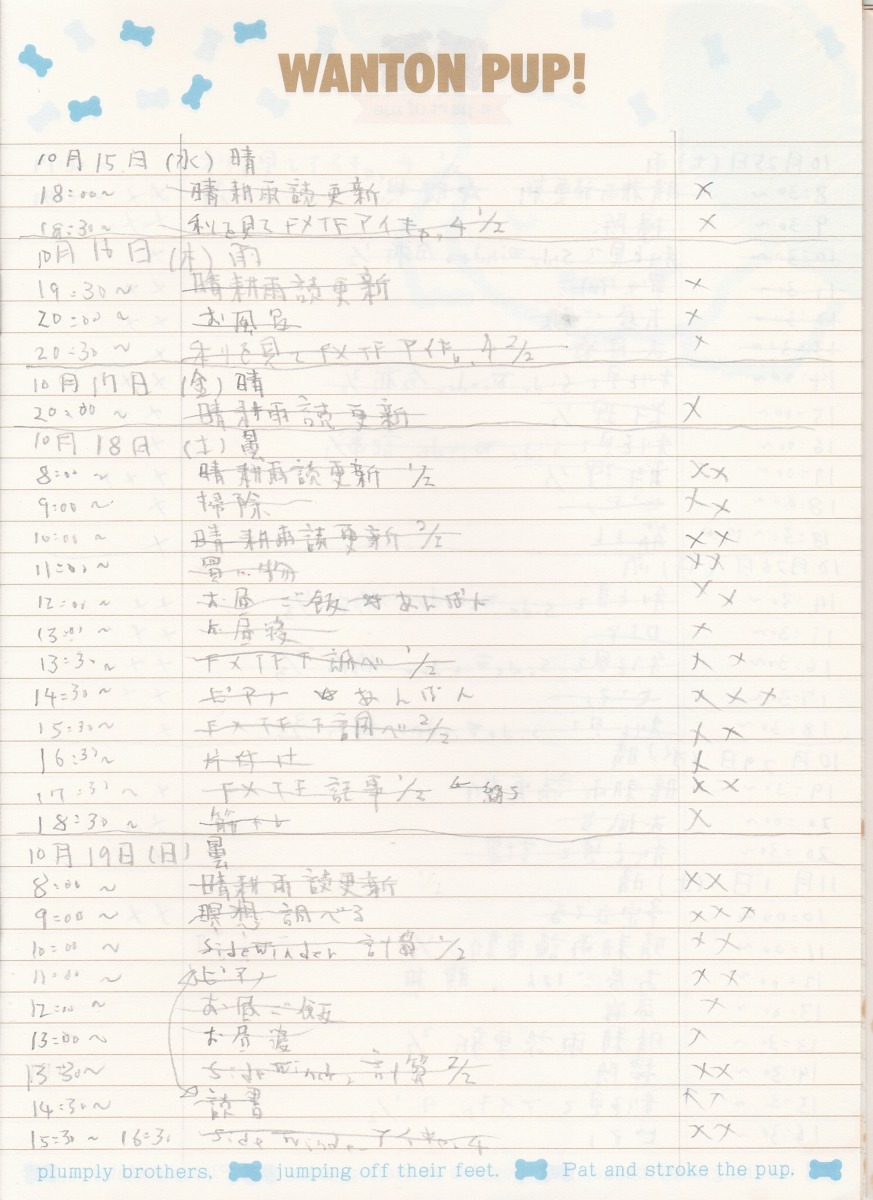 WANTON PUP!
10月15日(水) 晴
18:00~ 晴耕雨読更新 ×
18:30~ 利を見て FXTF アイキャ, 4 1/2 ×
10月16日(木) 雨
19:30~ 晴耕雨読更新 ×
20:00~ お風呂 ×
20:30~ 利を見て FXTF アイキャ, 4 2/2 ×
10月17日(金) 晴
20:00~ 晴耕雨読更新 ×
10月18日(土) 曇
8:00~ 晴耕雨読更新 1/2 ××
9:00~ 掃除 ××
10:00~ 晴耕雨読更新 2/2 ××
11:00~ 買い物 ××
12:00~ お昼ご飯 あんぱん ××
13:00~ お昼寝 ×
13:30~ FXTF下調べ 1/2 ××
14:30~ ピアノ あんぱん ×××
15:30~ FXTF下調べ 2/2 ××
16:30~ 片付け ×
17:30~ FXTF 記事 1/2 ← ××
18:30~ 筋トレ ×
10月19日(日) 曇
8:00~ 晴耕雨読更新 ××
9:00~ 瞑想調べる ×××
10:00~ SideWinder 計算 1/2 ××
11:00~ ピアノ ××
12:00~ お昼ご飯 ×
13:00~ お昼寝 ×
13:30~ SideWinder 計算 2/2 ××
14:30~ 読書 ××
15:30~16:30 SideWinder アイキャ, 4 ××
plumply brothers, jumping off their feet. Pat and stroke the pup.